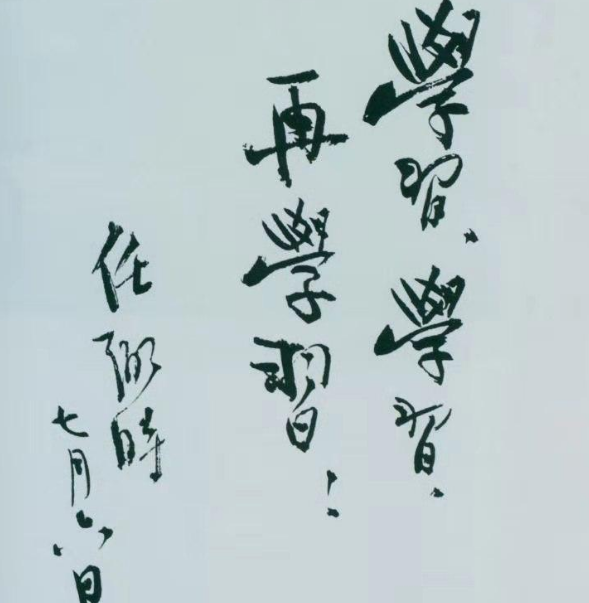 學習、學習.
再學習！
任弼時
七月六日